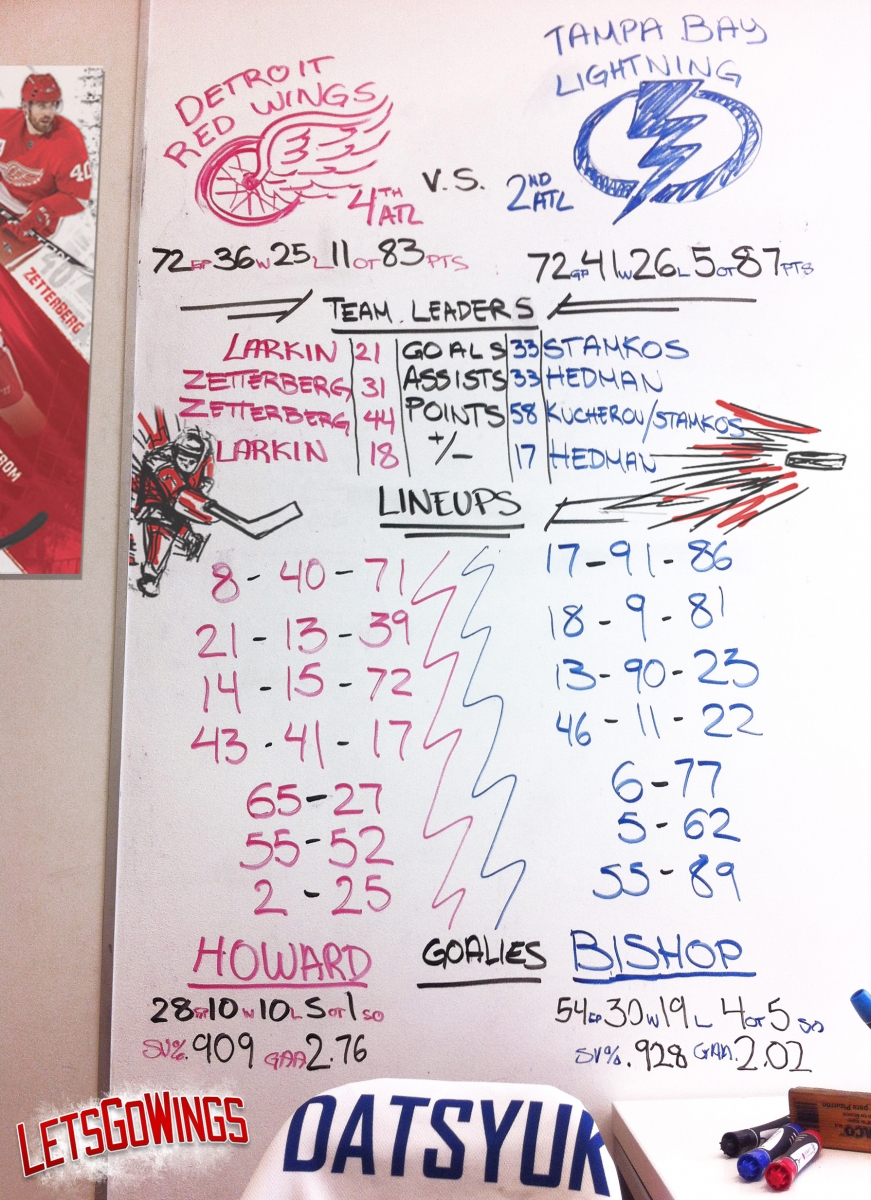 DETROIT
RED WINGS
4TH
ATL
V.S.
TAMPA BAY
LIGHTNING
2ND
ATL
72GP 36W 25L 11OT 83PTS
72GP 41W 26L 5OT 87PTS
TEAM LEADERS
LARKIN 21 GOALS 33 STAMKOS
ZETTERBERG 31 ASSISTS 33 HEDMAN
ZETTERBERG 44 POINTS 58 KUCHEROV/STAMKOS
LARKIN 18 +/- 17 HEDMAN
LINEUPS
8 - 40 - 71
21 - 13 - 39
14 - 15 - 72
43 - 41 - 17
65 - 27
55 - 52
2 - 25
17 - 91 - 86
18 - 9 - 81
13 - 90 - 23
46 - 11 - 22
6 - 77
5 - 62
55 - 89
GOALIES
HOWARD
28GP 10W 10L 5OT 1SO
SV% .909 GAA 2.76
BISHOP
54GP 30W 19L 4OT 5SO
SV% .928 GAA 2.02
40
40
ZETTERBERG
ROM
LETSGOWINGS
DATSYUK